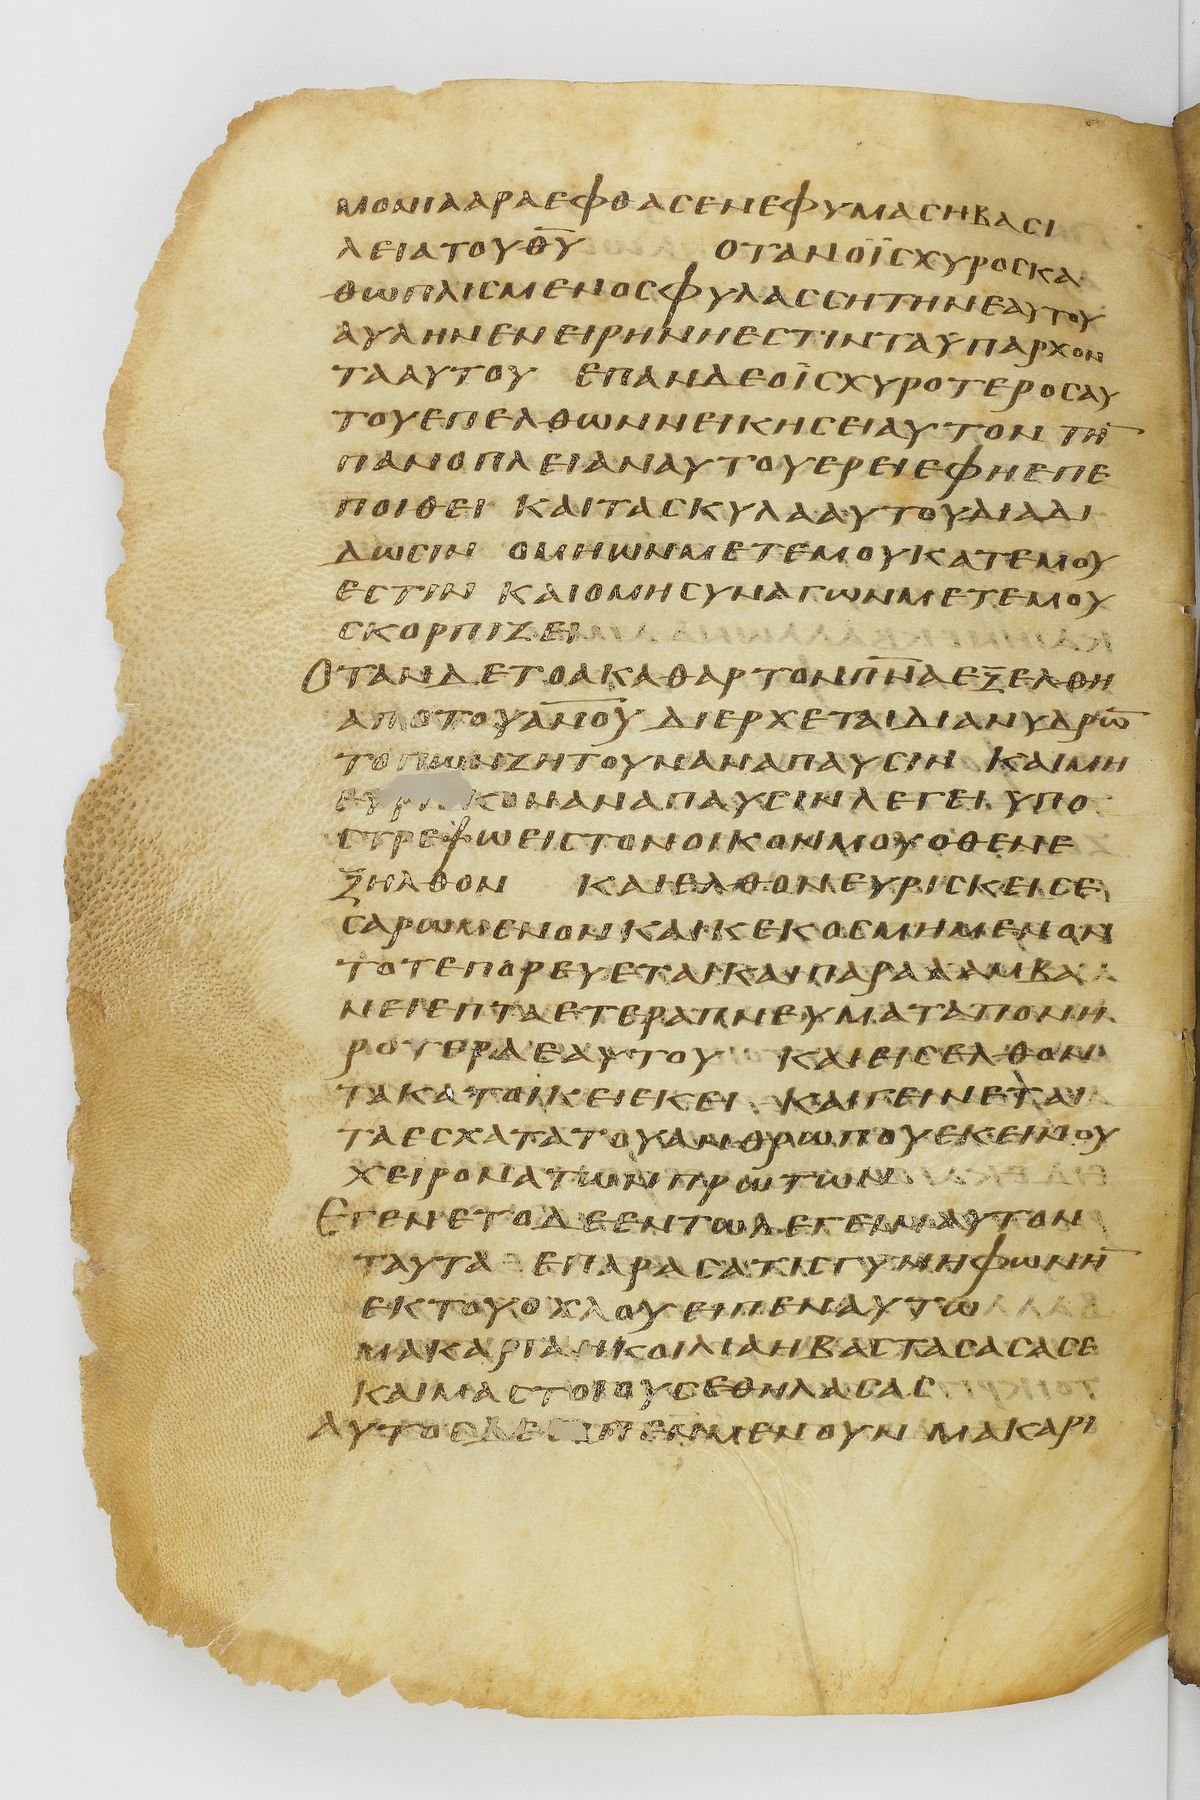 ΜΟΝΙΑΑΡΑΕΦΘΑϹΕΝΕΦΥΜΑϹΗΒΑϹΙ
ΛΕΙΑΤΟΥΘ̅Υ̅ ΟΤΑΝΟΪϹΧΥΡΟϹΚΑ
ΘΩΠΛΙϹΜΕΝΟϹΦΥΛΑϹϹΗΤΗΝΕΑΥΤΟΥ
ΑΥΛΗΝΕΝΕΙΡΗΝΗΕϹΤΙΝΤΑΥΠΑΡΧΟΝ
ΤΑΑΥΤΟΥ ΕΠΑΝΔΕΟΪϹΧΥΡΟΤΕΡΟϹΑΥ
ΤΟΥΕΠΕΛΘΩΝΝΕΙΚΗϹΕΙΑΥΤΟΝ ΤΗ̅
ΠΑΝΟΠΛΕΙΑΝΑΥΤΟΥΕΡΕΙΕΦΗΕΠΕ
ΠΟΙΘΕΙ ΚΑΙΤΑϹΚΥΛΑΑΥΤΟΥΔΙΑΔΙ
ΔΩϹΙΝ ΟΜΗΩΝΜΕΤΕΜΟΥΚΑΤΕΜΟΥ
ΕϹΤΙΝ ΚΑΙΟΜΗϹΥΝΑΓΩΝΜΕΤΕΜΟΥ
ϹΚΟΡΠΙΖΕΙ
ΟΤΑΝΔΕΤΟΑΚΑΘΑΡΤΟΝΠ̅Ν̅ΑΕΞΕΛΘΗ
ΑΠΟΤΟΥΑ̅Ν̅Ο̅Υ̅ ΔΙΕΡΧΕΤΑΙΔΙΑΝΥΔΡΩ̅
ΤΟΠΩΝΖΗΤΟΥΝΑΝΑΠΑΥϹΙΝ ΚΑΙΜΗ
ΕΥΡΙϹΚΟΝΑΝΑΠΑΥϹΙΝΛΕΓΕΙ ΥΠΟ
ϹΤΡΕΨΩΕΙϹΤΟΝΟΙΚΟΝΜΟΥΟΘΕΝΕ
ΞΗΛΘΟΝ ΚΑΙΕΛΘΟΝΕΥΡΙϹΚΕΙϹΕ
ϹΑΡΩΜΕΝΟΝΚΑΙΚΕΚΟϹΜΗΜΕΝΟΝ
ΤΟΤΕΠΟΡΕΥΕΤΑΙΚΑΙΠΑΡΑΛΑΜΒΑ
ΝΕΙΕΠΤΑΕΤΕΡΑΠΝΕΥΜΑΤΑΠΟΝΗ
ΡΟΤΕΡΑΕΑΥΤΟΥ ΚΑΙΕΙϹΕΛΘΟΝ
ΤΑΚΑΤΟΙΚΕΙΕΚΕΙ ΚΑΙΓΕΙΝΕΤΑΙ
ΤΑΕϹΧΑΤΑΤΟΥΑΝΘΡΩΠΟΥΕΚΕΙΝΟΥ
ΧΕΙΡΟΝΑΤΩΝΠΡΩΤΩΝ
ΕΓΕΝΕΤΟΔΕΕΝΤΩΛΕΓΕΙΝΑΥΤΟΝ
ΤΑΥΤΑ ΕΠΑΡΑϹΑΤΙϹΓΥΝΗΦΩΝΗ̅
ΕΚΤΟΥΟΧΛΟΥΕΙΠΕΝΑΥΤΩ
ΜΑΚΑΡΙΑΗΚΟΙΛΙΑΗΒΑϹΤΑϹΑϹΑϹΕ
ΚΑΙΜΑϹΤΟΙΟΥϹΕΘΗΛΑϹΑϹ
ΑΥΤΟϹΔΕΕΙΠΕΝΜΕΝΟΥΝ ΜΑΚΑΡΙ